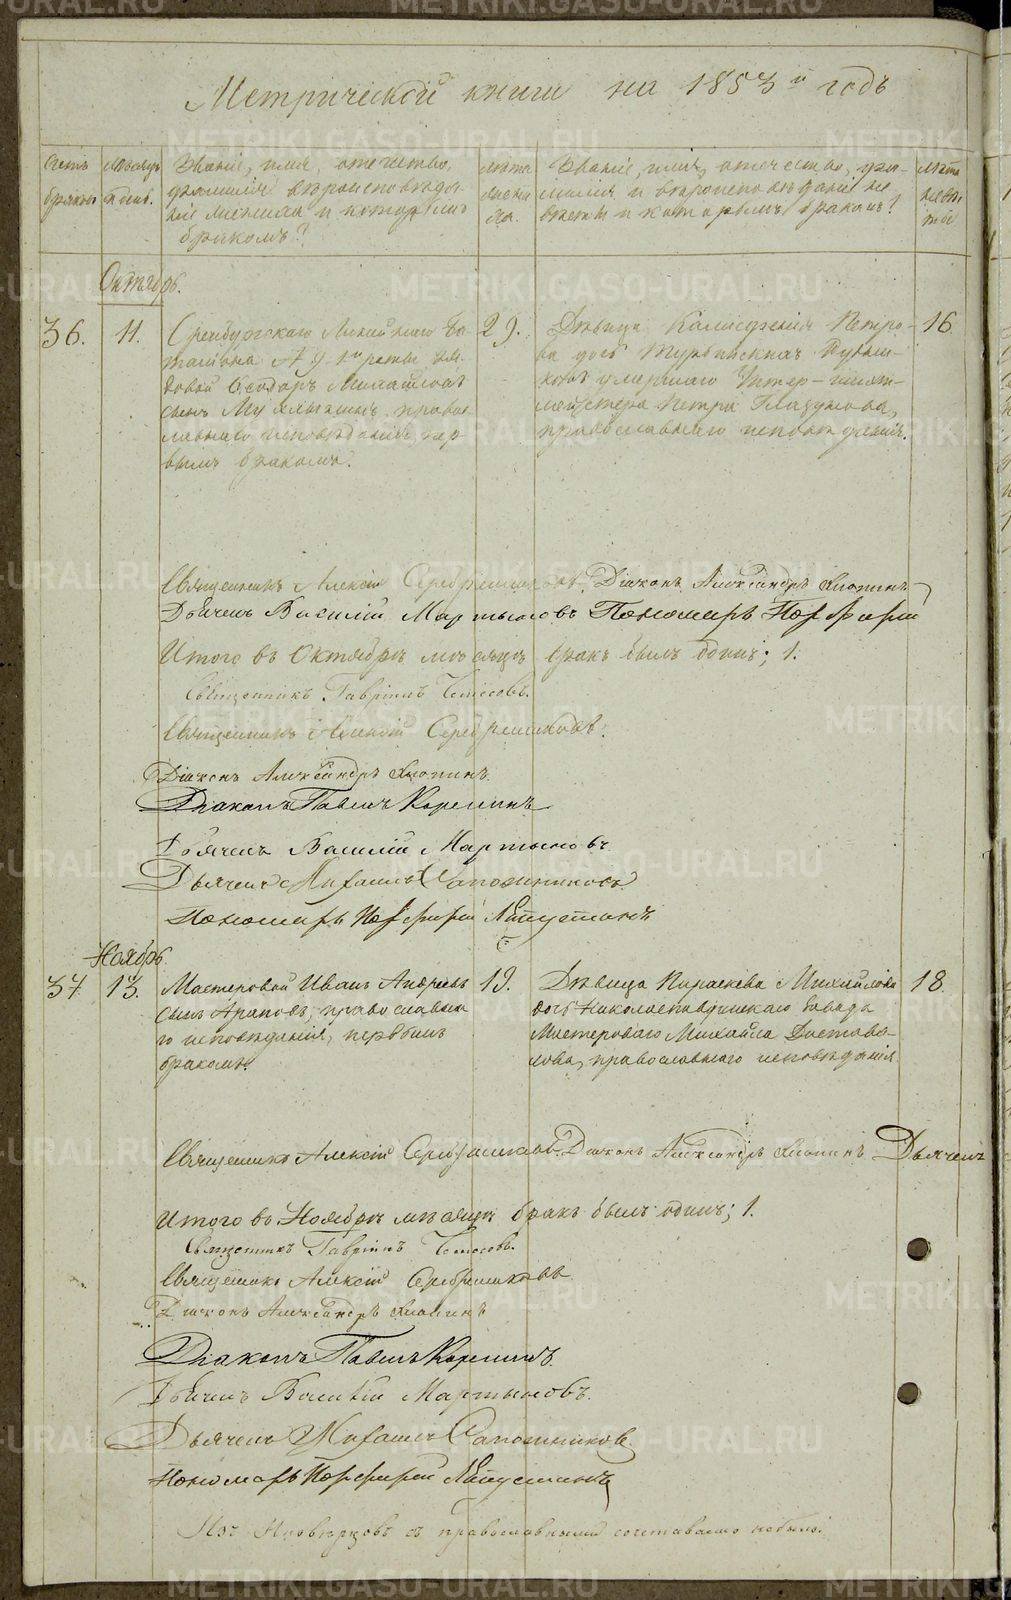 Метрической книги на 1853й годъ
Счетъ браковъ
Мѣсяцъ и день.
Званіе, имя, отечество,
фамилія и вѣроисповѣда-
ніе жениха и которымъ
бракомъ?
лѣта жениха.
Званіе, имя, отечество, фа-
милія и вѣроисповѣданіе не-
вѣсты и которымъ бракомъ?
лѣта невѣсты
Октябрь.
36.
11.
Оренбургскаго Линейнаго Ба-
таліона № 9 1й роты ря-
довой Ѳеодоръ
сынъ правос
лавнаго исповѣданія, пер-
вымъ бракомъ.
29.
Дѣвица Петро-
ва дочь Турьинскихъ Рудни-
ковъ умершаго Унтер-шихт-
мейстера Петра Глазунова,
православнаго исповѣданія.
16
Священникъ Алексій Серебренниковъ. Діаконъ Александръ Хлопинъ
Дьячекъ Василій Мартыновъ Пономарь Порфирій
Итого въ Октябрѣ мѣсяцѣ бракъ былъ одинъ; 1.
Священникъ Гавріилъ
Священникъ Алексій Серебренниковъ.
Діаконъ Александръ Хлопинъ.
Діаконъ Павелъ Корелинъ
Дьячекъ Василій Мартыновъ
Дьячекъ Михаилъ Сапожниковъ
Пономарь Порфирій Капустинъ
Ноябрь
37
13.
Мастеровой Иванъ Андреевъ
сынъ Араповъ, православна
го исповѣданія, первымъ
бракомъ.
19.
Дѣвица Параскева Михайлова
дочь Николаепавдинскаго Завода
Мастероваго Михайла Достова-
лова, православнаго исповѣданія.
18
Священникъ Алексій Серебренниковъ. Діаконъ Александръ Хлопинъ Дьячекъ
Итого въ Ноябрѣ мѣсяцѣ бракъ былъ одинъ; 1.
Священникъ Гавріилъ
Священникъ Алексій Серебренниковъ
Діаконъ Александръ Хлопинъ
Діаконъ Павелъ Корелинъ.
Дьячекъ Василій Мартыновъ.
Дьячекъ Михаилъ Сапожниковъ.
Пономарь Порфирій Капустинъ
Изъ Иновѣрцовъ съ православными сочетаваемо небыло.
METRIKI.GASO-URAL.RU